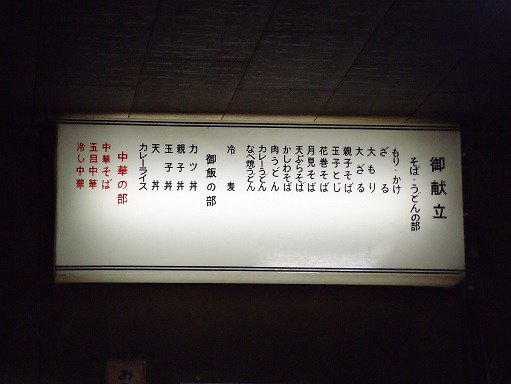 御献立
そば・うどんの部
もり・かけ
ざる
大もり
大ざる
親子そば
玉子とじ
花巻そば
月見そば
天ぷらそば
かしわそば
肉うどん
カレーうどん
なべ焼うどん
冷麦
御飯の部
カツ丼
親子丼
玉子丼
天丼
カレーライス
中華の部
中華そば
五目中華
冷し中華
お